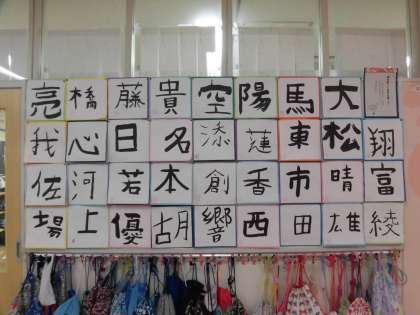 亮橋藤貴空陽馬大
我心日名添蓮東松翔
佐河若本創香市晴富
場上優胡響西田雄綾